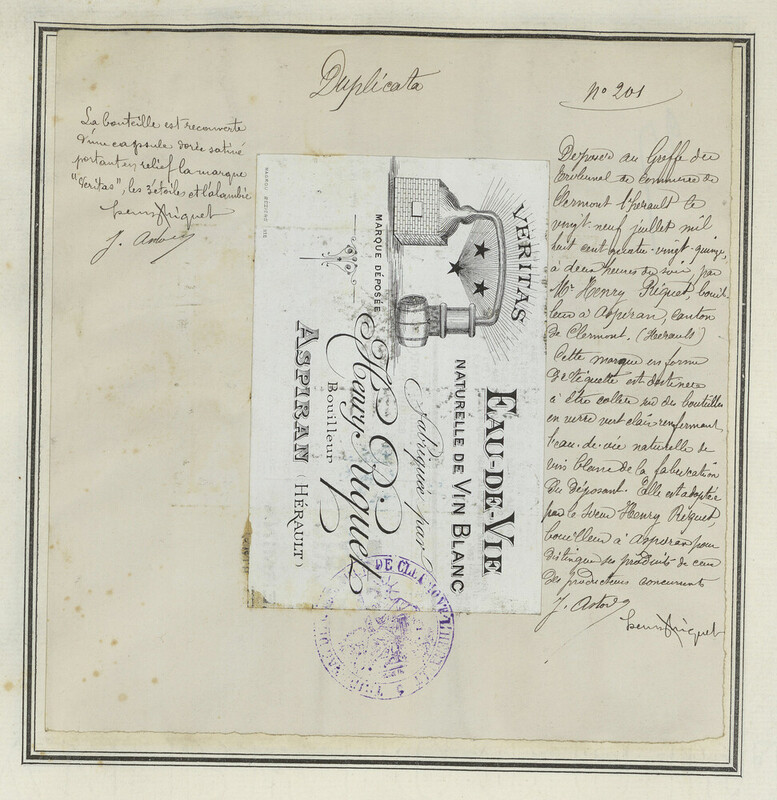 Duplicata
N° 201
La bouteille est recouverte
d'une capsule dorée satiné
portant en relief la marque
"Véritas", les 3 étoiles et l'alambic
Henry Riquet
VERITAS
EAU-DE-VIE
NATURELLE DE VIN BLANC
Fabriquée par
MARQUE DÉPOSÉE
Henry Riquet
Bouilleur
ASPIRAN (HÉRAULT)
Déposée au Greffe du
Tribunal de Commerce de
Clermont l'Hérault le
vingt neuf juillet mil
huit cent quatre-vingt-quinze,
à deux heures du soir, par
Mr Henry Riquet, bouil
leur à Aspiran, canton
de Clermont. (Hérault)
Cette marque en forme
d'étiquette est destinée
à être collée sur des bouteilles
en verre vert clair renfermant
l'eau-de-vie naturelle de
vin blanc de la fabrication
du déposant. Elle est adoptée
par le sieur Henry Riquet,
bouilleur à Aspiran pour
distinguer ses produits de ceux
des producteurs concurrents
Henry Riquet